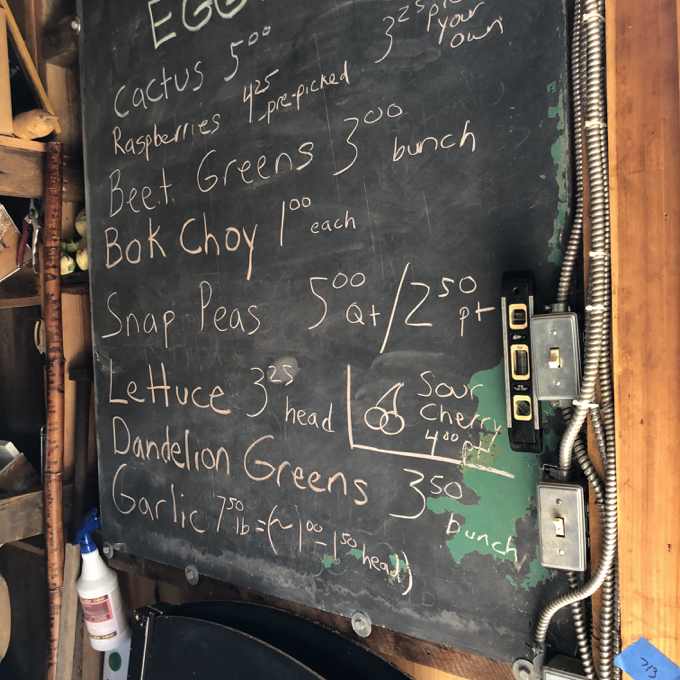 EGG
Cactus 5.00
3.25 pick your own
Raspberries 4.25 pre-picked
Beet Greens 3.00 bunch
Bok Choy 1.00 each
Snap Peas 5.00 Qt / 2.50 pt
Lettuce 3.25 head
Sour
Cherry
4.00 pt
Dandelion Greens 3.50 bunch
Garlic 7.50 lb = (~ 1.00 - 1.50 head)